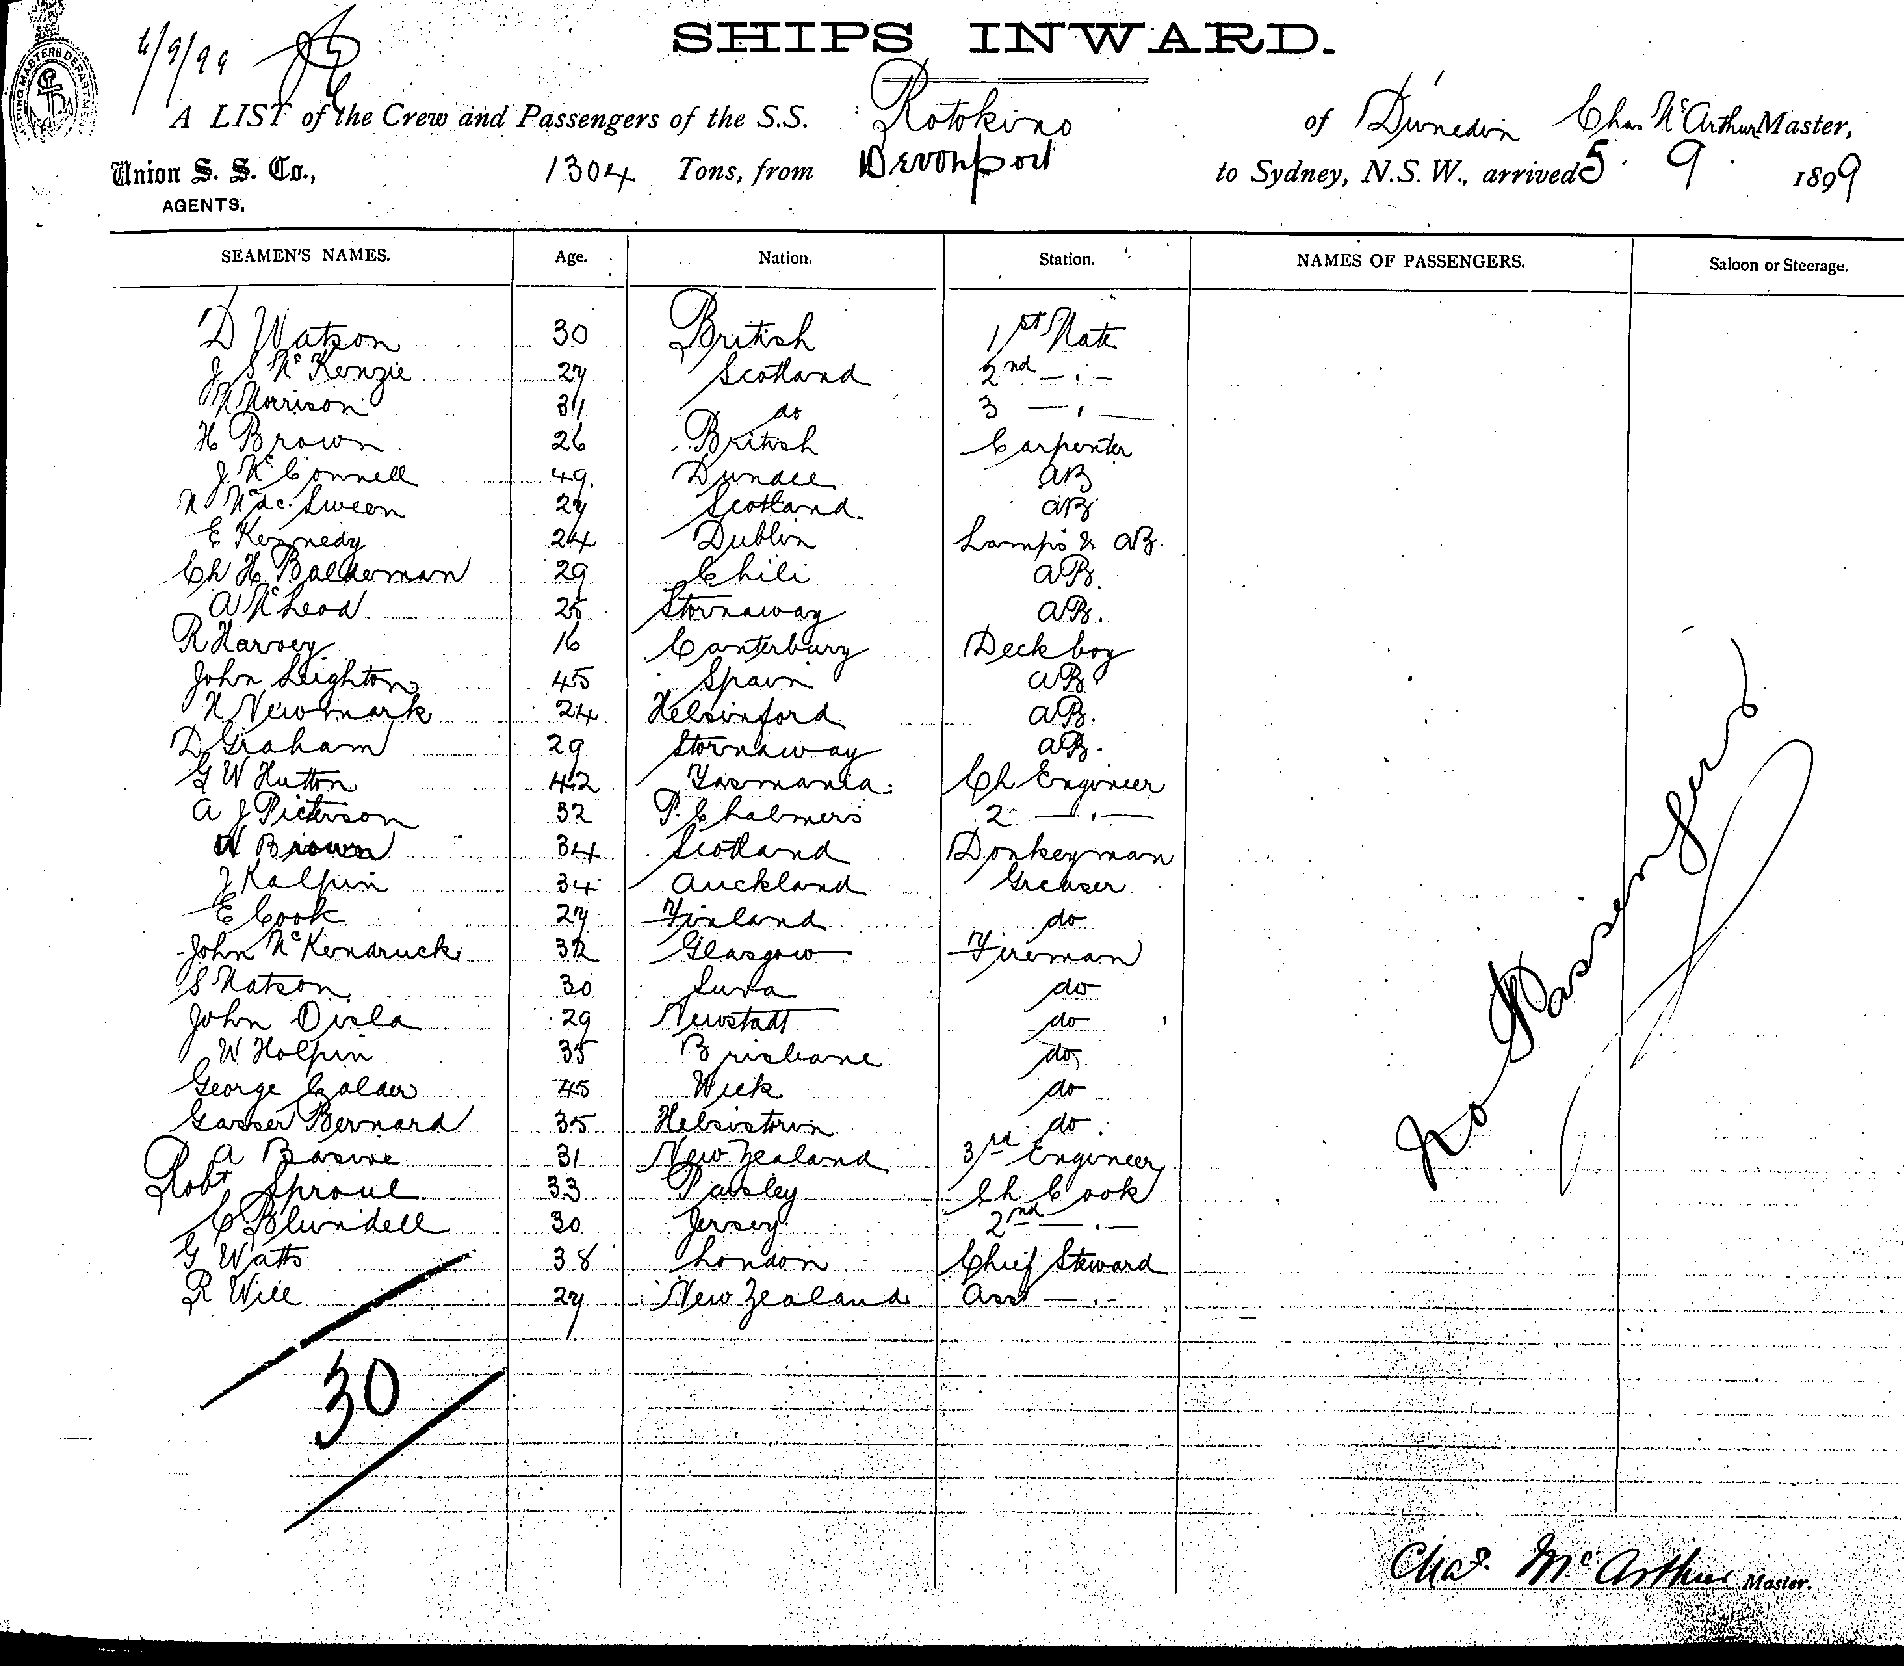 6/9/99
SHIPS INWARD.
A LIST of the Crew and Passengers of the S.S. Rotokino of Dunedin Chas McArthur Master,
Union S. S. Co., 1304 Tons, from Devonport to Sydney, N.S.W., arrived 5 9 1899
AGENTS,
SEAMEN'S NAMES. Age. Nation. Station. NAMES OF PASSENGERS. Saloon or Steerage.
D Watson 30 British 1st Mate
J S McKenzie 27 Scotland 2nd — . —
N Morrison 31 do 3 — . —
H Brown 26 British Carpenter
J McConnell 49 Dundee AB
N MacSween 27 Scotland AB
E Kennedy 24 Dublin Lamps & AB.
Ch H Balderman 29 Chili AB.
A McLeod 25 Stornaway AB.
R Harvey 16 Canterbury Deck boy
John Leighton 45 Spain AB
N Newmark 24 Helsinford AB.
D Graham 29 Stornaway AB.
G W Hutton 42 Tasmania Ch Engineer
A J Pieterson 32 P. Chalmers 2 — . —
W Brown 34 Scotland Donkeyman
J Kalpin 34 Auckland Greaser
E Cook 27 Finland do
John McKendruck 32 Glasgow Fireman
S Watson 30 Suva do
John Disla 29 Neustadt do
W Holpin 35 Brisbane do
George Calder 45 Wick do
Gasser Bernard 35 Helsistorin do
A 31 New Zealand 3rd Engineer
Robt Sproul 33 Paisley Ch Cook
C Blundell 30 Jersey 2nd — . —
G Watts 38 London Chief Steward
R Will 27 New Zealand Asst — . —
No Passengers
30
Chas. McArthur Master.